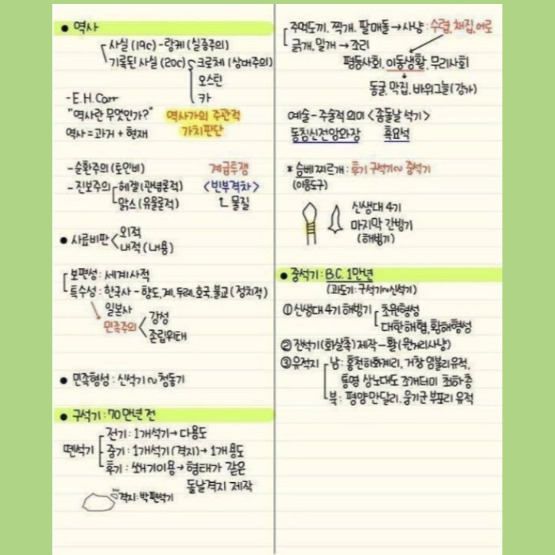 ● 역사
사실 (19c) - 랑케 (실증주의)
기록된 사실 (20c) 크로체 (상대주의)
오스틴
카
- E.H.Carr
"역사란 무엇인가?" 역사가의 주관적
역사 = 과거 + 현재 가치판단
- 순환주의 (토인비) 계급투쟁
- 진보주의 헤겔 (관념론적) <빈부격차>
맑스 (유물론적) 물질
● 사료비판 외적
내적 (내용)
보편성 : 세계사적
특수성 : 한국사 - 향도, 계, 두레, 호국불교 (정치적)
일본사
민족주의 감성
존립위태
● 민족형성 : 신석기 ~ 청동기
● 구석기 : 70만년 전
뗀석기 전기 : 1개석기 → 다용도
중기 : 1개석기 (격지) → 1개 용도
후기 : 쐐기이용 → 형태가 같은
돌날격지 제작
격지 : 박편석기
주먹도끼, 찍개, 팔매돌 → 사냥 : 수렵, 채집, 어로
긁개, 밀개 → 조리
평등사회, 이동생활, 무리사회
동굴, 막집, 바위그늘 (강가)
예술 - 주술적 의미 <좀돌날 석기>
흑요석
* 슴베찌르개 : 후기 구석기 ~ 중석기
(이음도구)
신생대 4기
마지막 간빙기
(해빙기)
● 중석기 : B.C. 1만년
(과도기 : 구석기~신석기)
① 신생대 4기 해빙기 초원형성
대한해협, 황해형성
② 잔석기 (화살촉) 제작 - 활 (원거리사냥)
③ 유적지 남 : 홍천하화계리, 거창 임불리유적,
통영 상노대도 조개더미 최하층
북 : 평양 만달리, 웅기군 부포리 유적